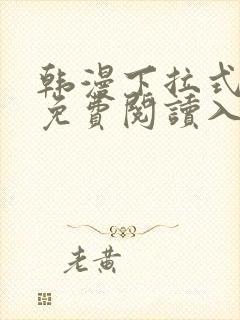 韩漫下拉式
免費閱讀入
老黄